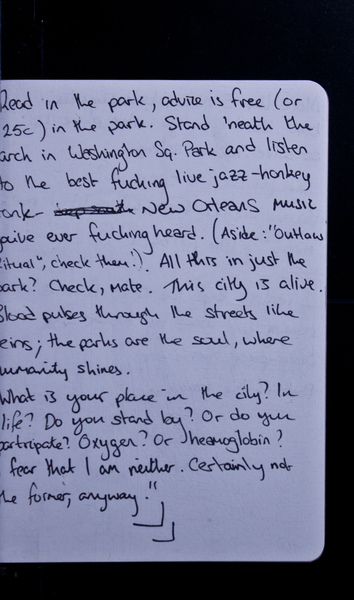 Read in the park, advice is free (or
25c) in the park. Stand 'neath the
arch in Washington Sq. Park and listen
to the best fucking live jazz-honkey
tonk- New Orleans music
I've ever fucking heard. (Aside: "Outlaw
Ritual", check them!). All this in just the
park? Check, mate. This city is alive.
Blood pulses through the streets like
veins; the parks are the soul, where
humanity shines.
What is your place in the city? In
life? Do you stand by? Or do you
participate? Oxygen? Or haemoglobin?
I fear that I am neither. Certainly not
the former, anyway."